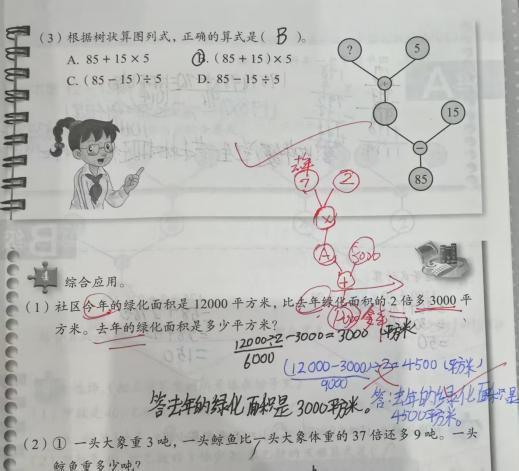 (3) 根据树状算图列式，正确的算式是( B )。
A. 85+15×5 B. (85+15)×5
C. (85-15)÷5 D. 85-15÷5
? 5
÷
15
-
85
去年
? 2
×
A 3000
+
综合应用。
(1) 社区今年的绿化面积是 12000 平方米，比去年绿化面积的 2 倍多 3000 平
方米。去年的绿化面积是多少平方米?
12000÷2-3000=3000 平方米
6000
(12000-3000)÷2=4500 (平方米)
9000
答去年的绿化面积是 3000平方米。
答:去年的绿化面积是
4500平方米。
(2) ① 一头大象重 3 吨，一头鲸鱼比一头大象体重的 37 倍还多 9 吨。一头
鲸鱼重多少吨?